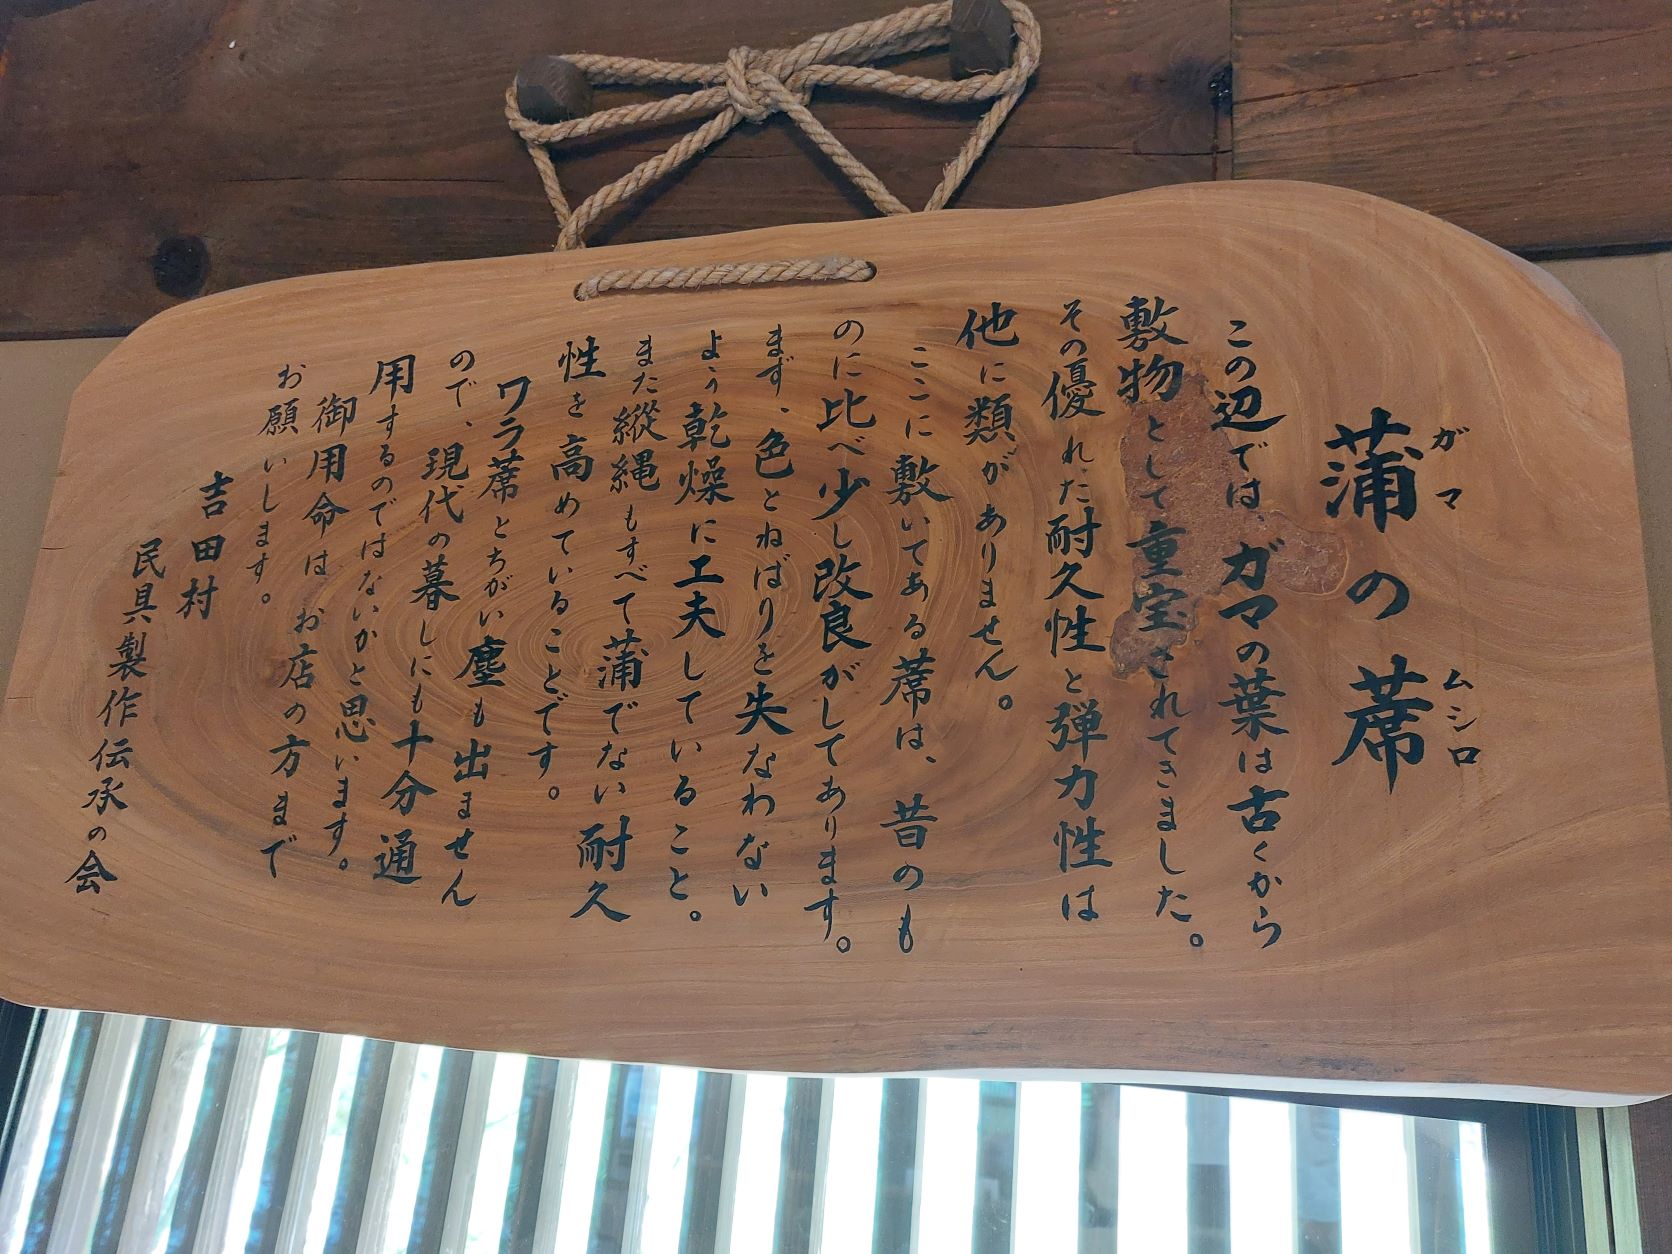 蒲の蓆
ガマ ムシロ
この辺では、ガマの葉は古くから
敷物として重宝されてきました。
その優れた耐久性と弾力性は
他に類がありません。
ここに敷いてある蓆は、昔のも
のに比べ少し改良がしてあります。
まず、色とねばりを失なわない
よう乾燥に工夫していること。
また縦縄もすべて蒲でない耐久
性を高めていることです。
ワラ蓆とちがい塵も出ません
ので、現代の暮しにも十分通
用するのではないかと思います。
御用命は お店の方まで
お願いします。
吉田村
民具製作伝承の会